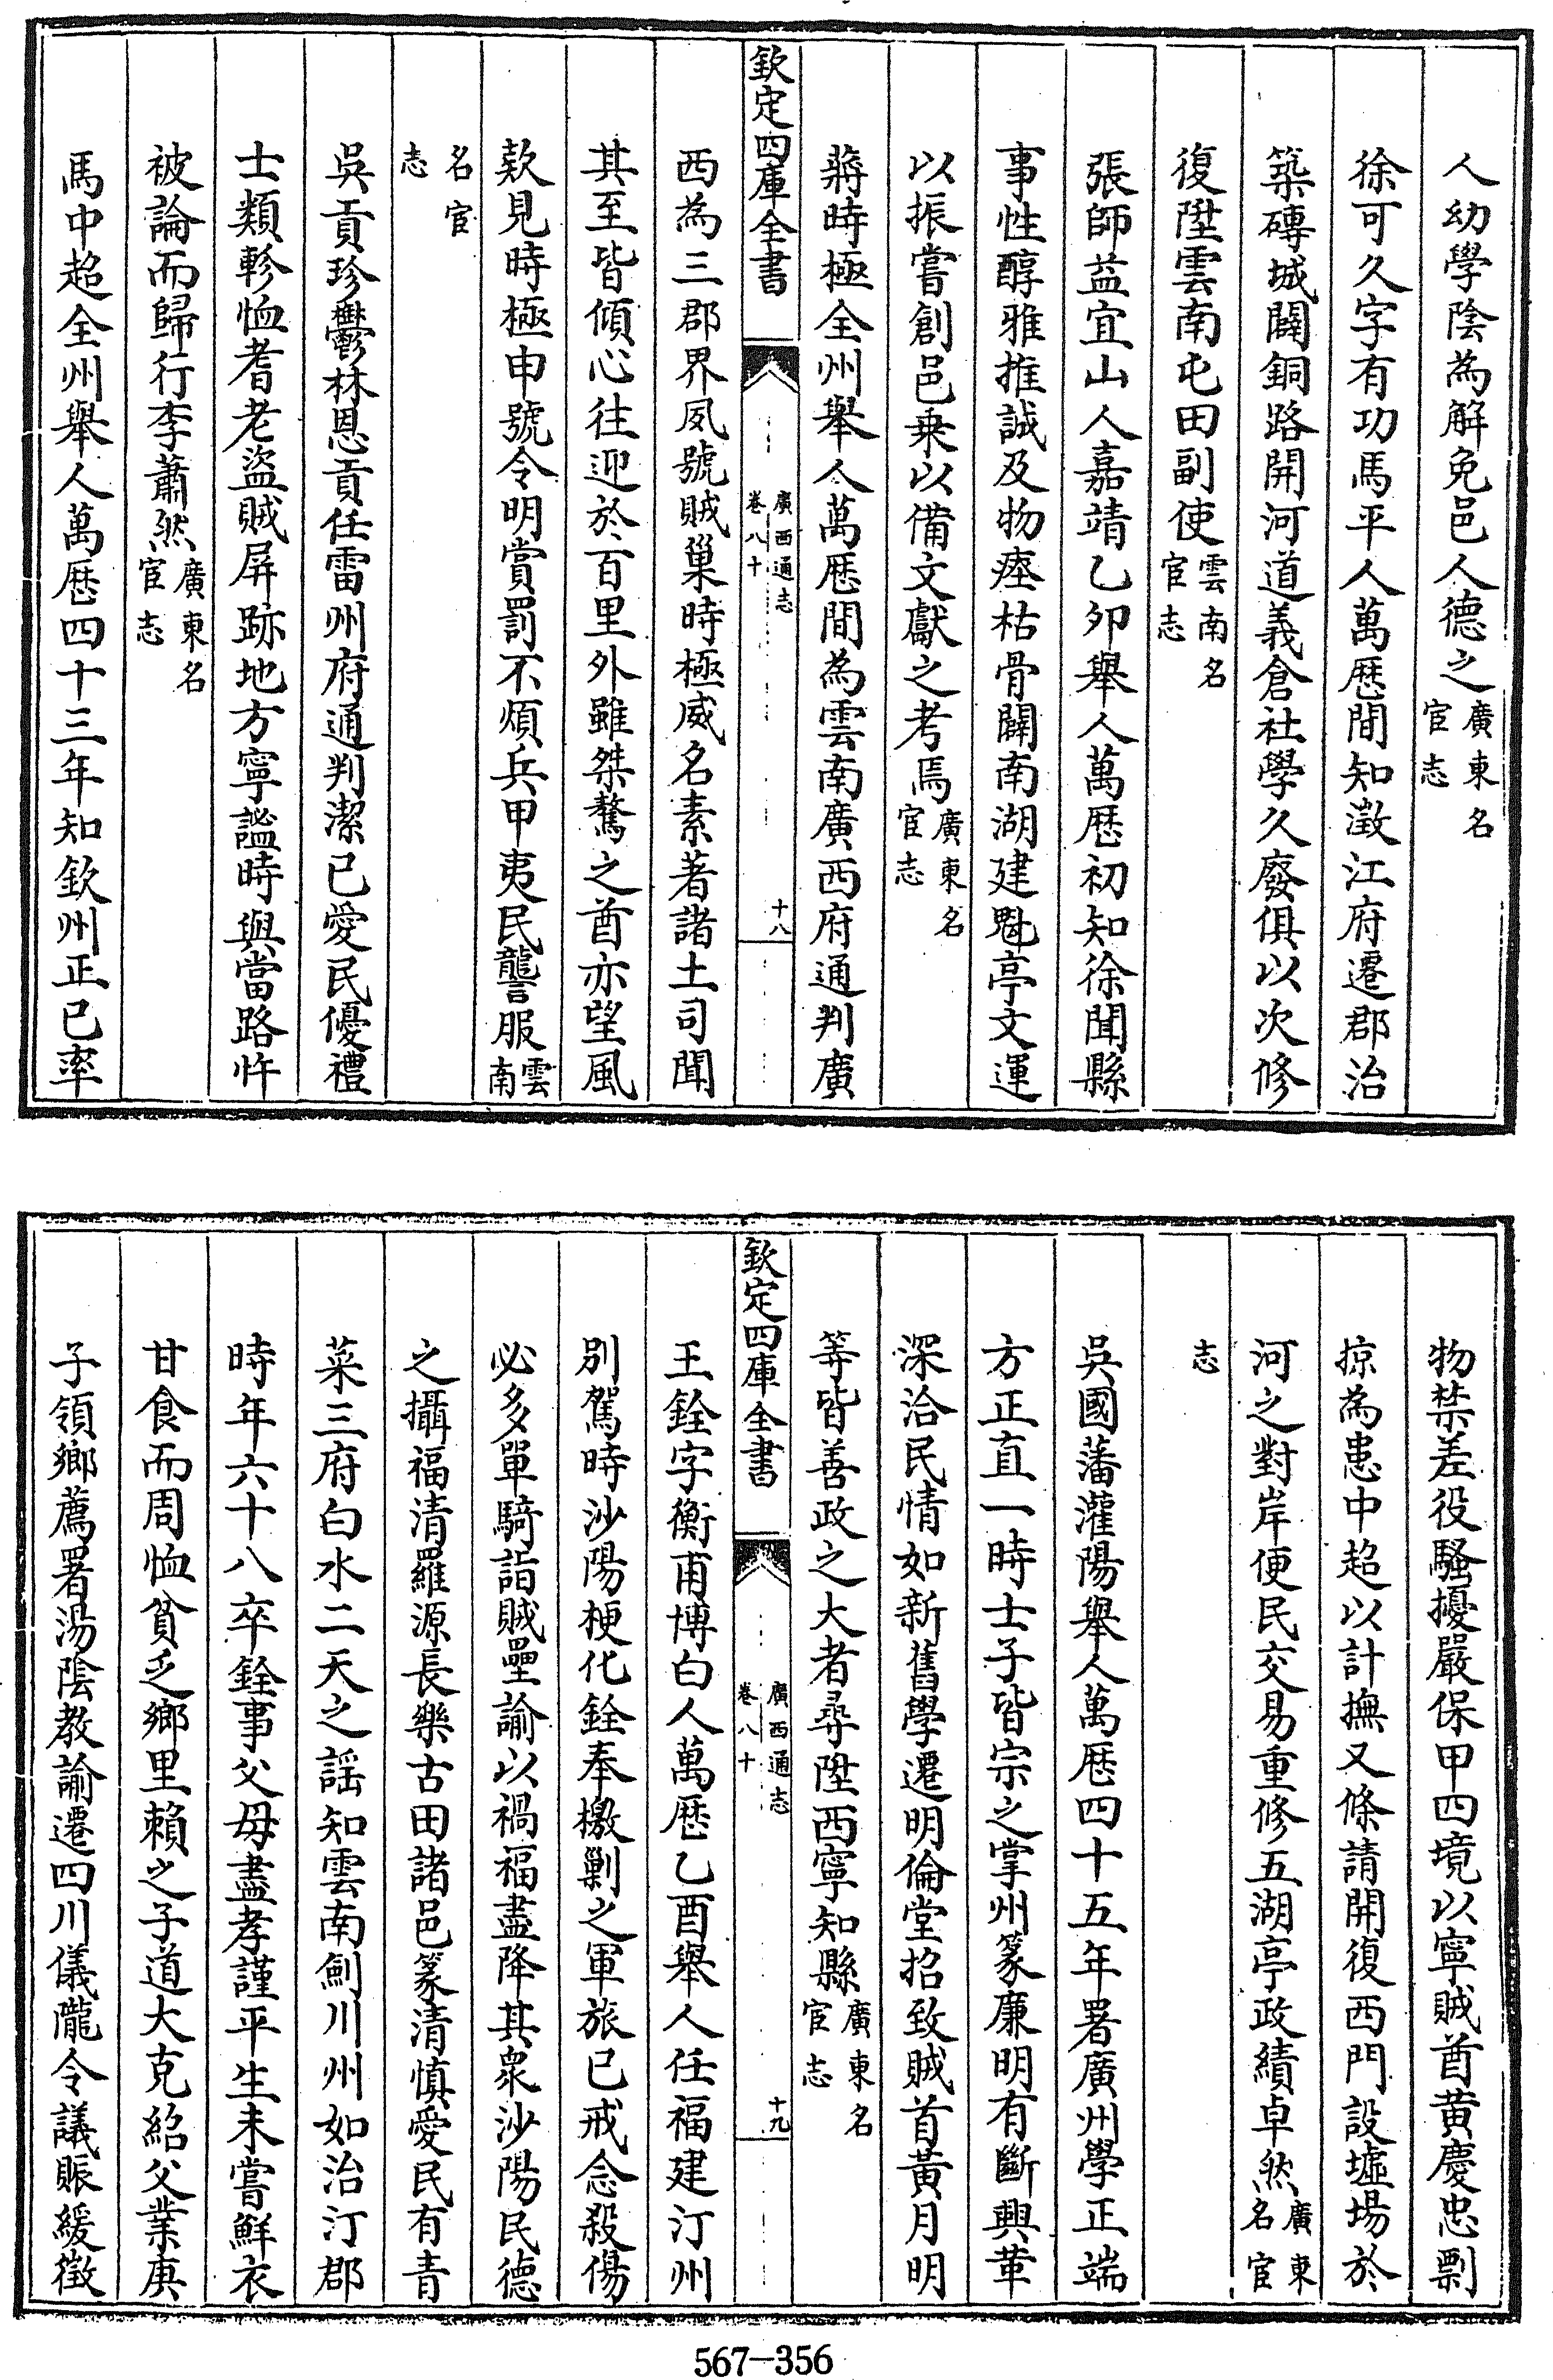 人幼學陰為解免邑人德之廣東名宦志
徐可久字有功馬平人萬厯間知澂江府遷郡治
築磚城闢銅路開河道義倉社學久廢俱以次修
復陞雲南屯田副使雲南名宦志
張師益宜山人嘉靖乙卯舉人萬厯初知徐聞縣
事性醇雅推誠及物瘞枯骨闢南湖建魁亭文運
以振嘗創邑乗以備文獻之考焉廣東名宦志
蔣時極全州舉人萬厯間為雲南廣西府通判廣
欽定四庫全書
廣西通志
卷八十
十八
西為三郡界夙號賊巢時極威名素著諸土司聞
其至皆傾心往迎於百里外雖桀驁之酋亦望風
欵見時極申號令明賞罰不煩兵甲夷民讋服雲南
名宦志
吳貢珍鬱林恩貢任雷州府通判潔已愛民優禮
士類軫恤耆老盜賊屏跡地方寧謐時與當路忤
被論而歸行李蕭然廣東名宦志
馬中超全州舉人萬厯四十三年知欽州正已率
物禁差役騷擾嚴保甲四境以寧賊酋黄慶忠剽
掠為患中超以計撫又條請開復西門設墟場於
河之對岸便民交易重修五湖亭政績卓然廣東名宦
志
吳國藩灌陽舉人萬厯四十五年署廣州學正端
方正直一時士子皆宗之掌州篆廉明有斷興革
深洽民情如新舊學遷明倫堂招致賊首黃月明
等皆善政之大者尋陞西寧知縣廣東名宦志
欽定四庫全書
廣西通志
卷八十
十九
王銓字衡甫博白人萬厯乙酉舉人任福建汀州
別駕時沙陽梗化銓奉檄剿之軍旅已戒念殺傷
必多單騎詣賊壘諭以禍福盡降其衆沙陽民德
之攝福清羅源長樂古田諸邑篆清慎愛民有青
菜三府白水二天之謡知雲南劍川州如治汀郡
時年六十八卒銓事父母盡孝謹平生未嘗鮮衣
甘食而周恤貧乏鄉里賴之子道大克紹父業庚
子領鄉薦署湯陰教諭遷四川儀隴令議賑緩徵
567-356